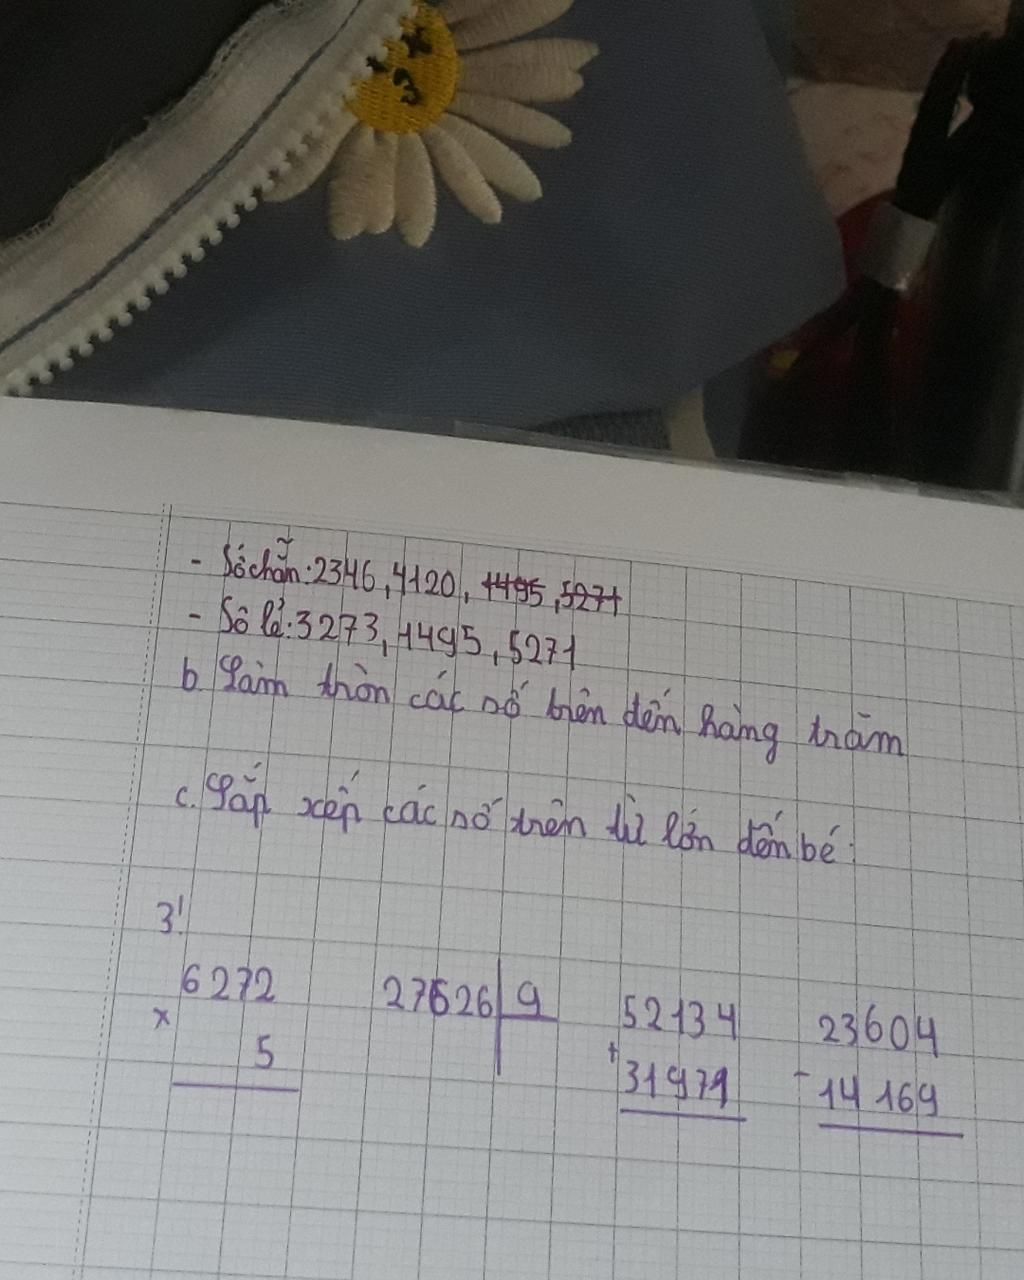 - Số chẵn: 2346, 4120, 1495, 5271
- Số lẻ: 3273, 1495, 5271
b. Làm tròn các số trên đến hàng trăm
c. Sắp xếp các số trên từ lớn đến bé:
3!
6272
×
5
27626 9
52134
+
31979
23604
-
14169